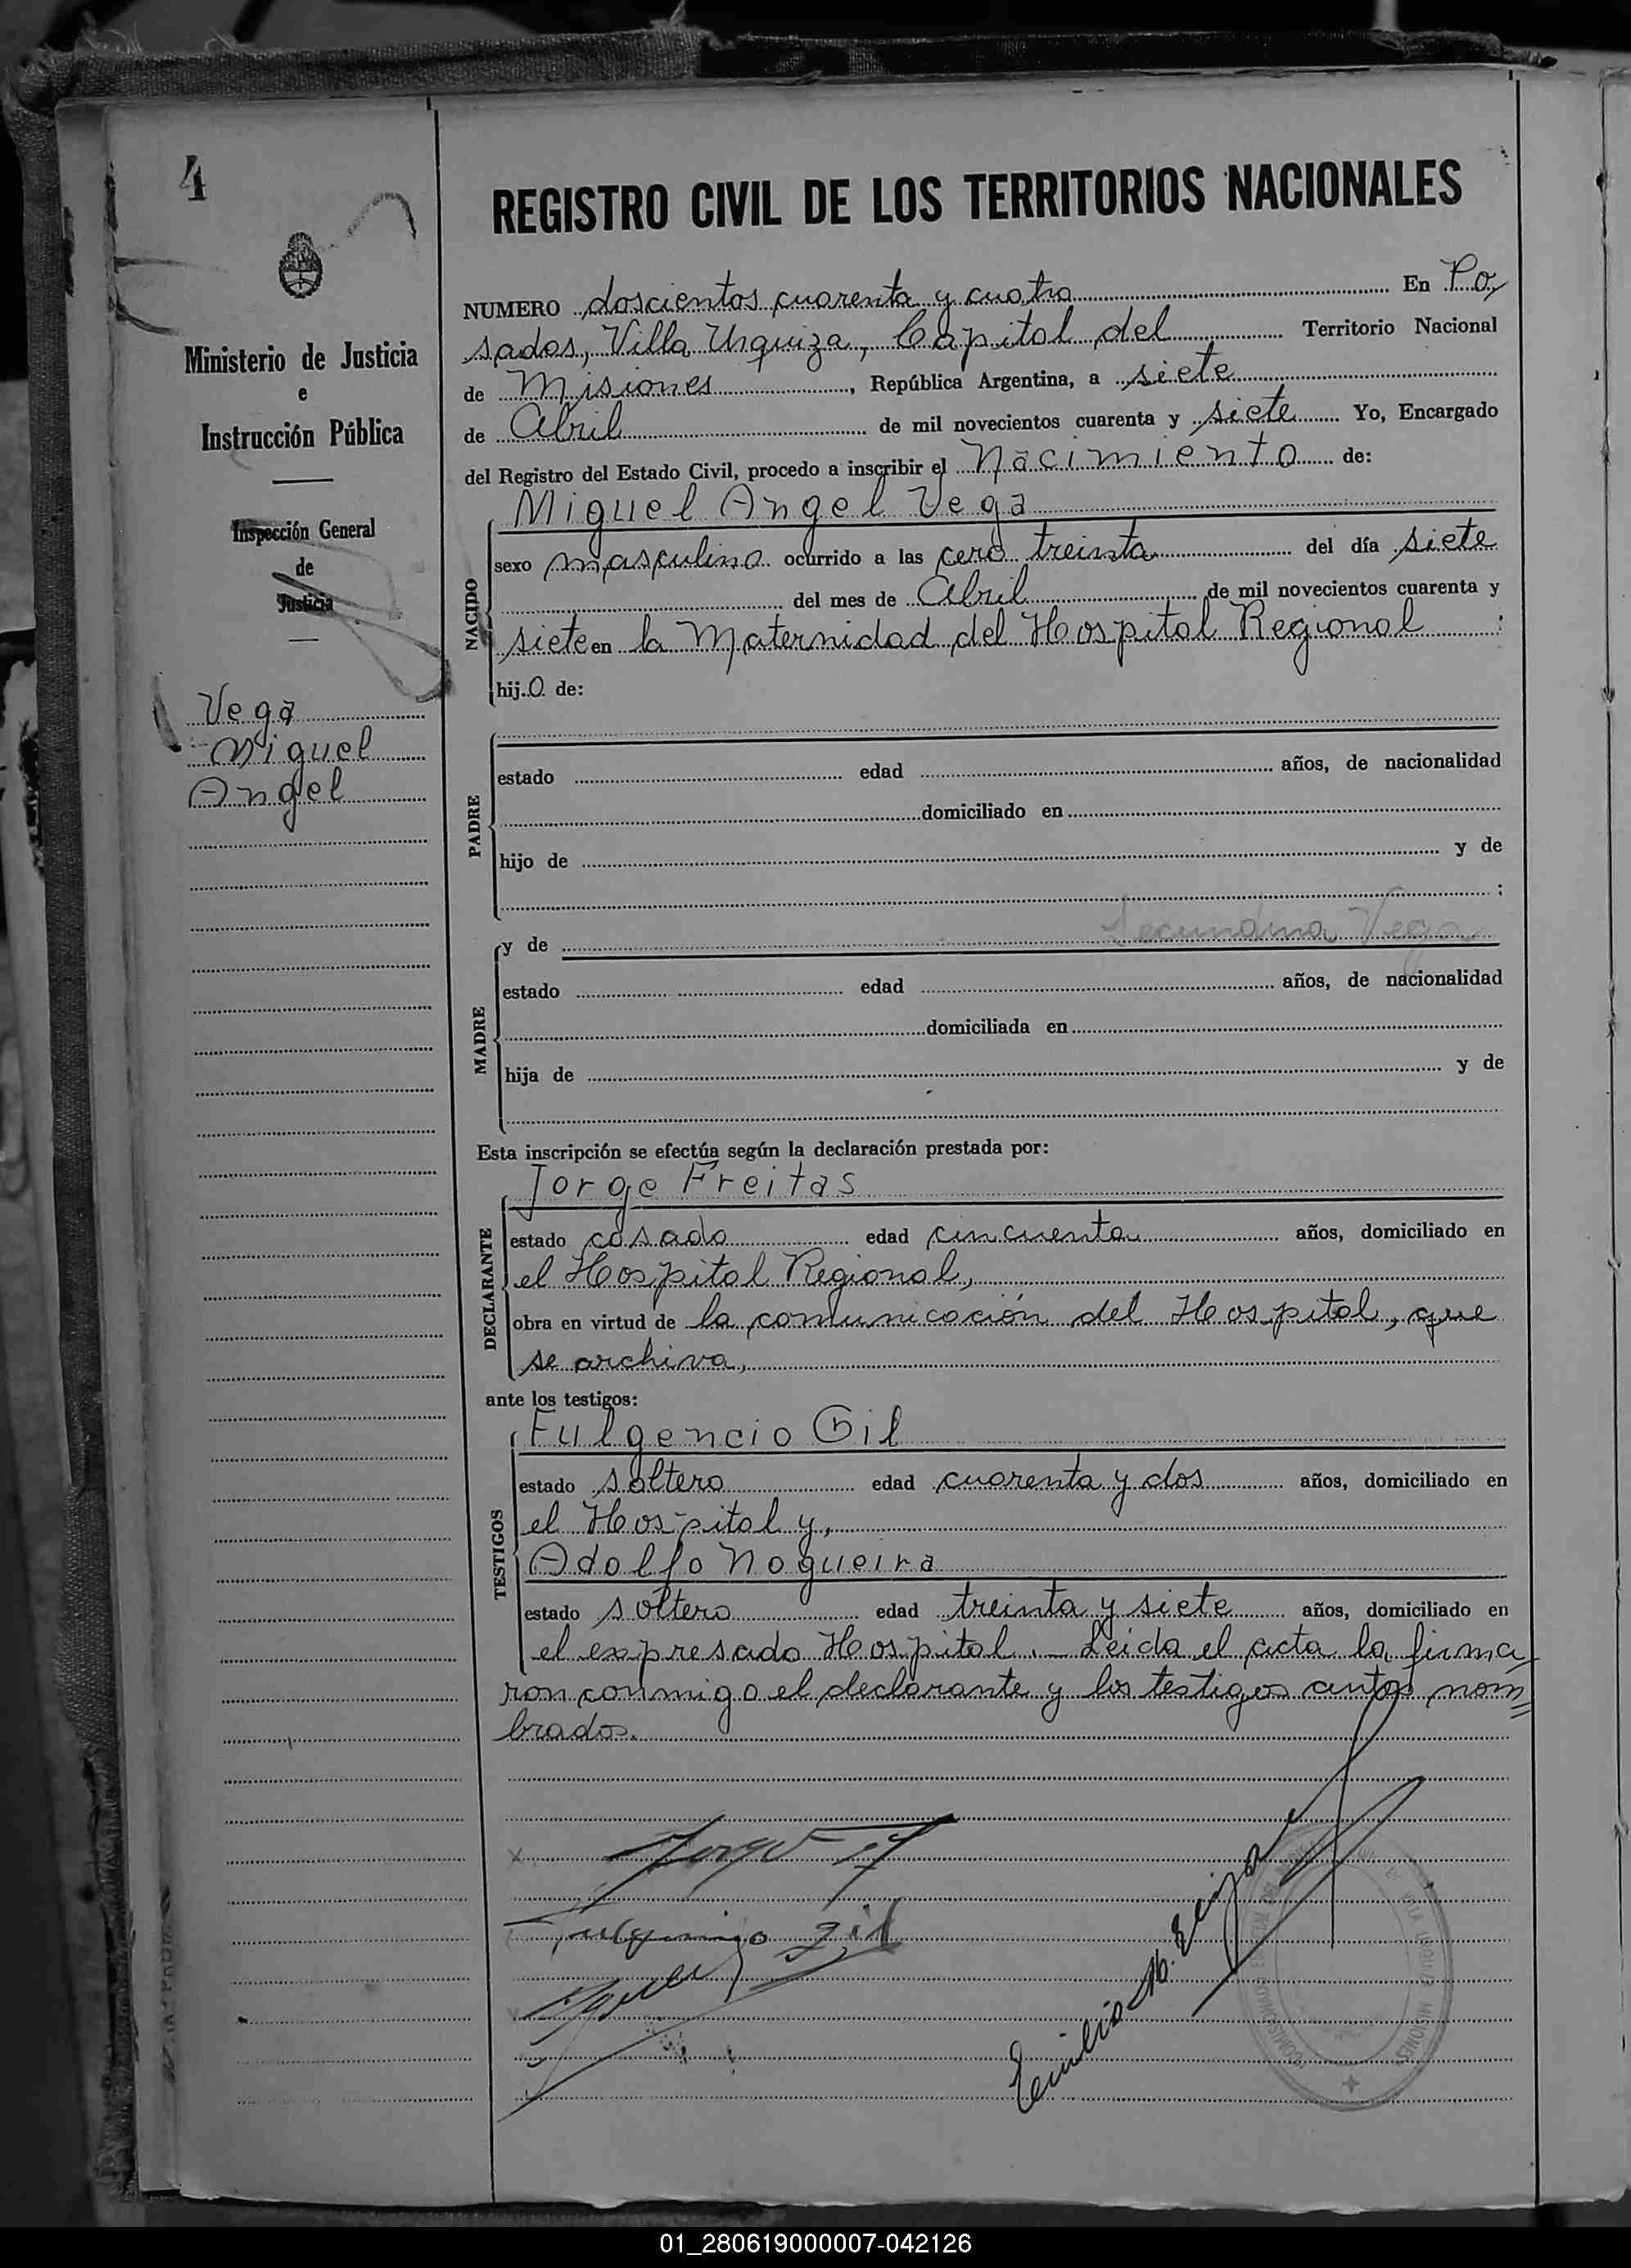 4
REGISTRO CIVIL DE LOS TERRITORIOS NACIONALES
Ministerio de Justicia
e
Instrucción Pública
Inspección General
de
Justicia
Vega
Miguel
Angel
NUMERO doscientos cuarenta y cuatro En Po
sadas, Villa Urquiza, Capital del Territorio Nacional
de Misiones, República Argentina, a siete
de Abril de mil novecientos cuarenta y siete Yo, Encargado
del Registro del Estado Civil, procedo a inscribir el Nacimiento de:
NACIDO
Miguel Angel Vega
sexo masculino ocurrido a las cero treinta del día siete
del mes de Abril de mil novecientos cuarenta y
siete en la Maternidad del Hospital Regional :
hijo de:
PADRE
estado edad años, de nacionalidad
domiciliado en
hijo de y de
:
MADRE
y de Secundina Vega
estado edad años, de nacionalidad
domiciliada en
hija de y de
Esta inscripción se efectúa según la declaración prestada por:
DECLARANTE
Jorge Freitas
estado casado edad cincuenta años, domiciliado en
el Hospital Regional,
obra en virtud de la comunicación del Hospital, que
se archiva,
ante los testigos:
TESTIGOS
Fulgencio Gil
estado soltero edad cuarenta y dos años, domiciliado en
el Hospital y,
Adolfo Nogueira
estado soltero edad treinta y siete años, domiciliado en
el expresado Hospital. - Leida el acta la firma
ron conmigo el declarante y los testigos antes nom=
brados.
Jorge F
Fulgencio Gil
Emilio M.
VILLA URQUIZA MISIONES
01_280619000007-042126